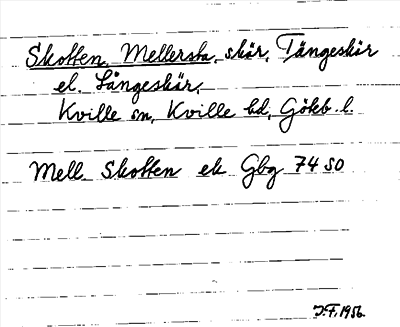 Skotten, Mellersta, skär, Tångeskär
el. Långeskär,
Kville sn, Kville hd, Göteb. l.
Mell. Skotten ek Gbg 74 SO
J.F. 1956.